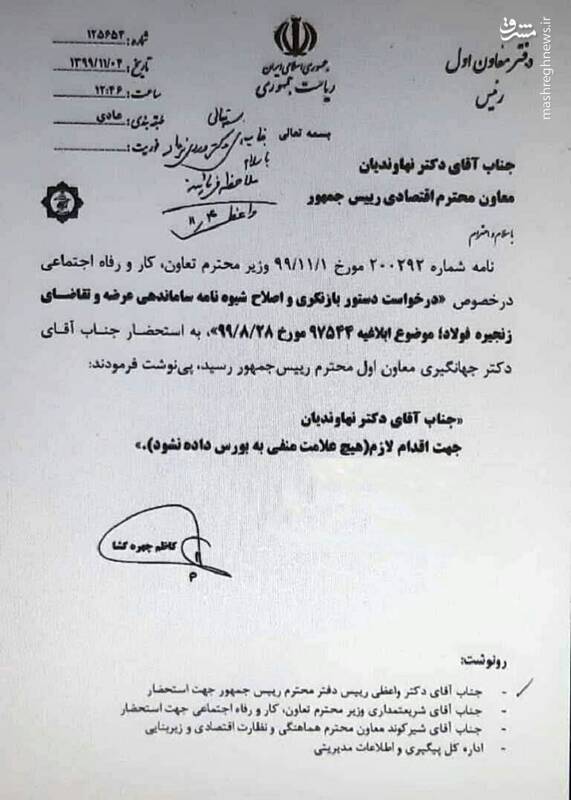 مشرق
mashreghnews.ir
دفتر معاون اول
رئیس
جمهوری اسلامی ایران
ریاست جمهوری
شماره: ۱۲۵۶۵۳
تاریخ: ۱۳۹۹/۱۱/۰۴
ساعت: ۱۲:۴۶
طبقه بندی: عادی
فوریت:
بسمه تعالی
با سلام
ملاحظه فرمایید
واعظی ۱۱/۴
جناب آقای دکتر نهاوندیان
معاون محترم اقتصادی رییس جمهور
با سلام و احترام
نامه شماره ۲۰۰۲۹۲ مورخ ۹۹/۱۱/۱ وزیر محترم تعاون، کار و رفاه اجتماعی
درخصوص «درخواست دستور بازنگری و اصلاح شیوه نامه ساماندهی عرضه و تقاضای
زنجیره فولاد؛ موضوع ابلاغیه ۹۷۵۴۴ مورخ ۹۹/۸/۲۸»، به استحضار جناب آقای
دکتر جهانگیری معاون اول محترم رییس‌جمهور رسید، پی‌نوشت فرمودند:
«جناب آقای دکتر نهاوندیان
جهت اقدام لازم(هیچ علامت منفی به بورس داده نشود).»
کاظم چهره کشا
رونوشت:
- جناب آقای دکتر واعظی رییس دفتر محترم رییس جمهور جهت استحضار
- جناب آقای شریعتمداری وزیر محترم تعاون، کار و رفاه اجتماعی جهت استحضار
- جناب آقای شیرکوند معاون محترم هماهنگی و نظارت اقتصادی و زیربنایی
- اداره کل پیگیری و اطلاعات مدیریتی